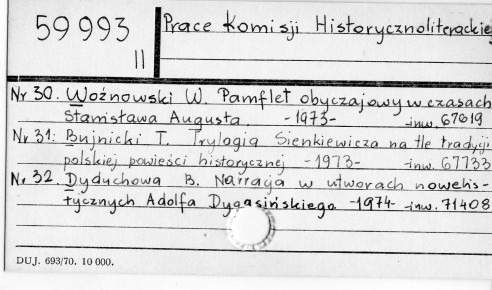 59993
II
Prace Komisji Historycznoliterackiej
Nr 30. Woźnowski W. Pamflet obyczajowy w czasach
Stanisława Augusta. -1973- inw. 67619
Nr 31: Bujnicki T. Trylogia Sienkiewicza na tle tradycji
polskiej powieści historycznej -1973- inw. 67733
Nr. 32. Dyduchowa B. Narracja w utworach noweli-
stycznych Adolfa Dygasińskiego -1974- inw. 71408
DUJ. 693/70. 10 000.